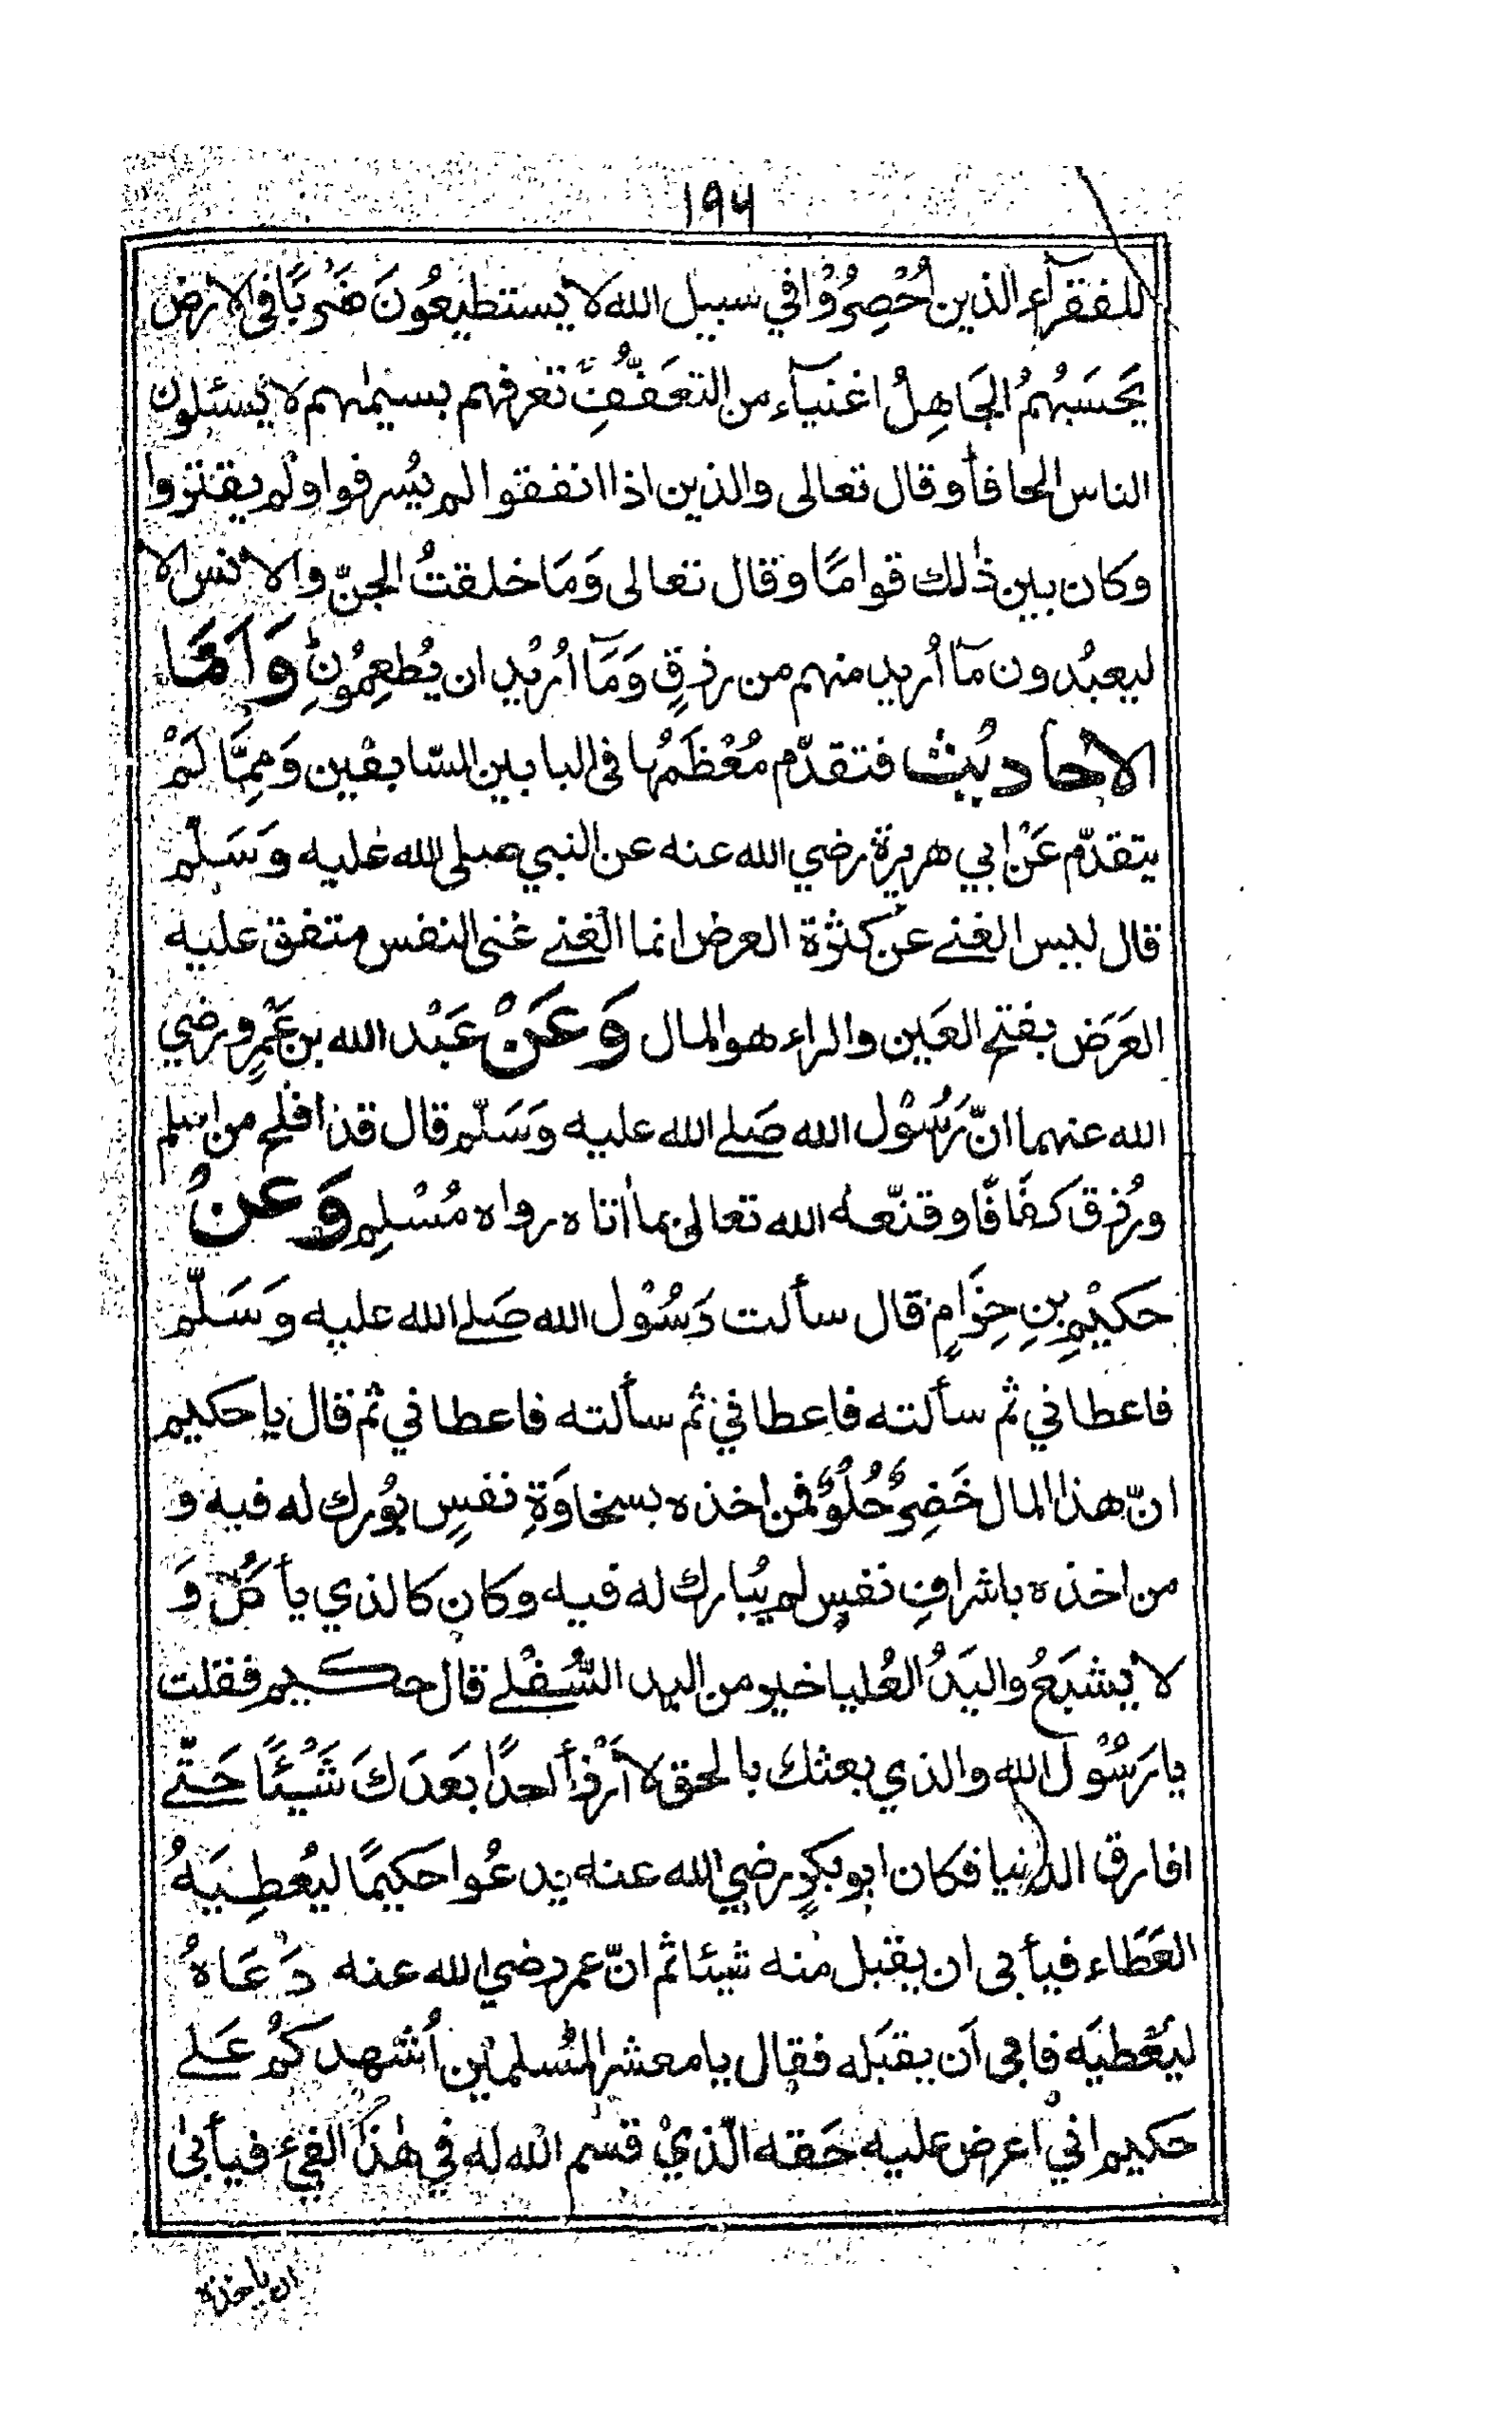 ۱۹۴
للفقرآء الذين اُحْصِرُوْا في سبيل الله لا يستطيعُونَ ضَرْبًا في الارض
يَحسَبُهمُ الجَاهِلُ اغنيآء من التعَفُّفِ تعرفهم بسيمٰهم لا يَسئلون
الناس الحافاً وقال تعالى والذين اذا انفقوا لم يُسرفوا ولم يقتروا
وكان بين ذٰلك قوامًا وقال تعالى وَمَا خلقتُ الجنّ والانس الا
ليعبُدون مآ اُريد منهم من رزقٍ وَمَآ اُرِيْد ان يُطعِمُونِ وَاَمَّا
الاحاديْث فتقدّم مُعْظَمُها في البابين السّابقين وَمِمَّا لَمْ
يتقدّم عَنْ ابي هريرة رضي الله عنه عن النبي صلى الله عليه وَسَلّم
قال ليس الغنے عن كثرة العرض انما الغنے غنى النفس متفق عليه
العَرَض بفتح العَين والراء هو المال وَعَنْ عَبْد الله بن عَمْرٍو رضي
الله عنهما انّ رَسُوْل الله صَلے الله عليه وَسَلّم قال قد افلح من اسلم
ورُزق كفَافًا وقنّعه الله تعالى بما اٰتاه رواه مُسْلِم وَعَنْ
حكيْمِ بنِ حِزَامٍ قال سألت رَسُوْل الله صَلے الله عليه وَسَلّم
فاعطاني ثم سألته فاعطاني ثم سألته فاعطاني ثم قال يا حكيم
انّ هذا المال خَضِرٌ حُلْوٌ فمن اخذه بسخاوَةِ نفسٍ بُورك له فيه و
من اخذه باشرافِ نفسٍ لم يُبارك له فيه وكان كالذي يأكُل وَ
لا يشبَعُ واليَدُ العُليا خير من اليد السُّفْلے قال حكيم فقلت
يا رَسُوْل الله والذي بعثك بالحق لا اَرْزأُ احدًا بَعدَكَ شَيْئًا حَتّے
افارق الدنيا فكان ابو بكرٍ رضي الله عنه يدعُوا حكيمًا ليُعطِيَهُ
العَطَاء فيأبى ان يقبل منه شيئا ثم انّ عمر رضي الله عنه دَعَاهُ
ليُعْطيَه فابى اَن يقبَله فقال يا معشر المُسلمين اُشهدكُمْ عَلے
حكيم اني اعرض عليه حَقه الّذيْ قسم الله له في هٰذا الفيء فيأبىٰ
ان ياخذه